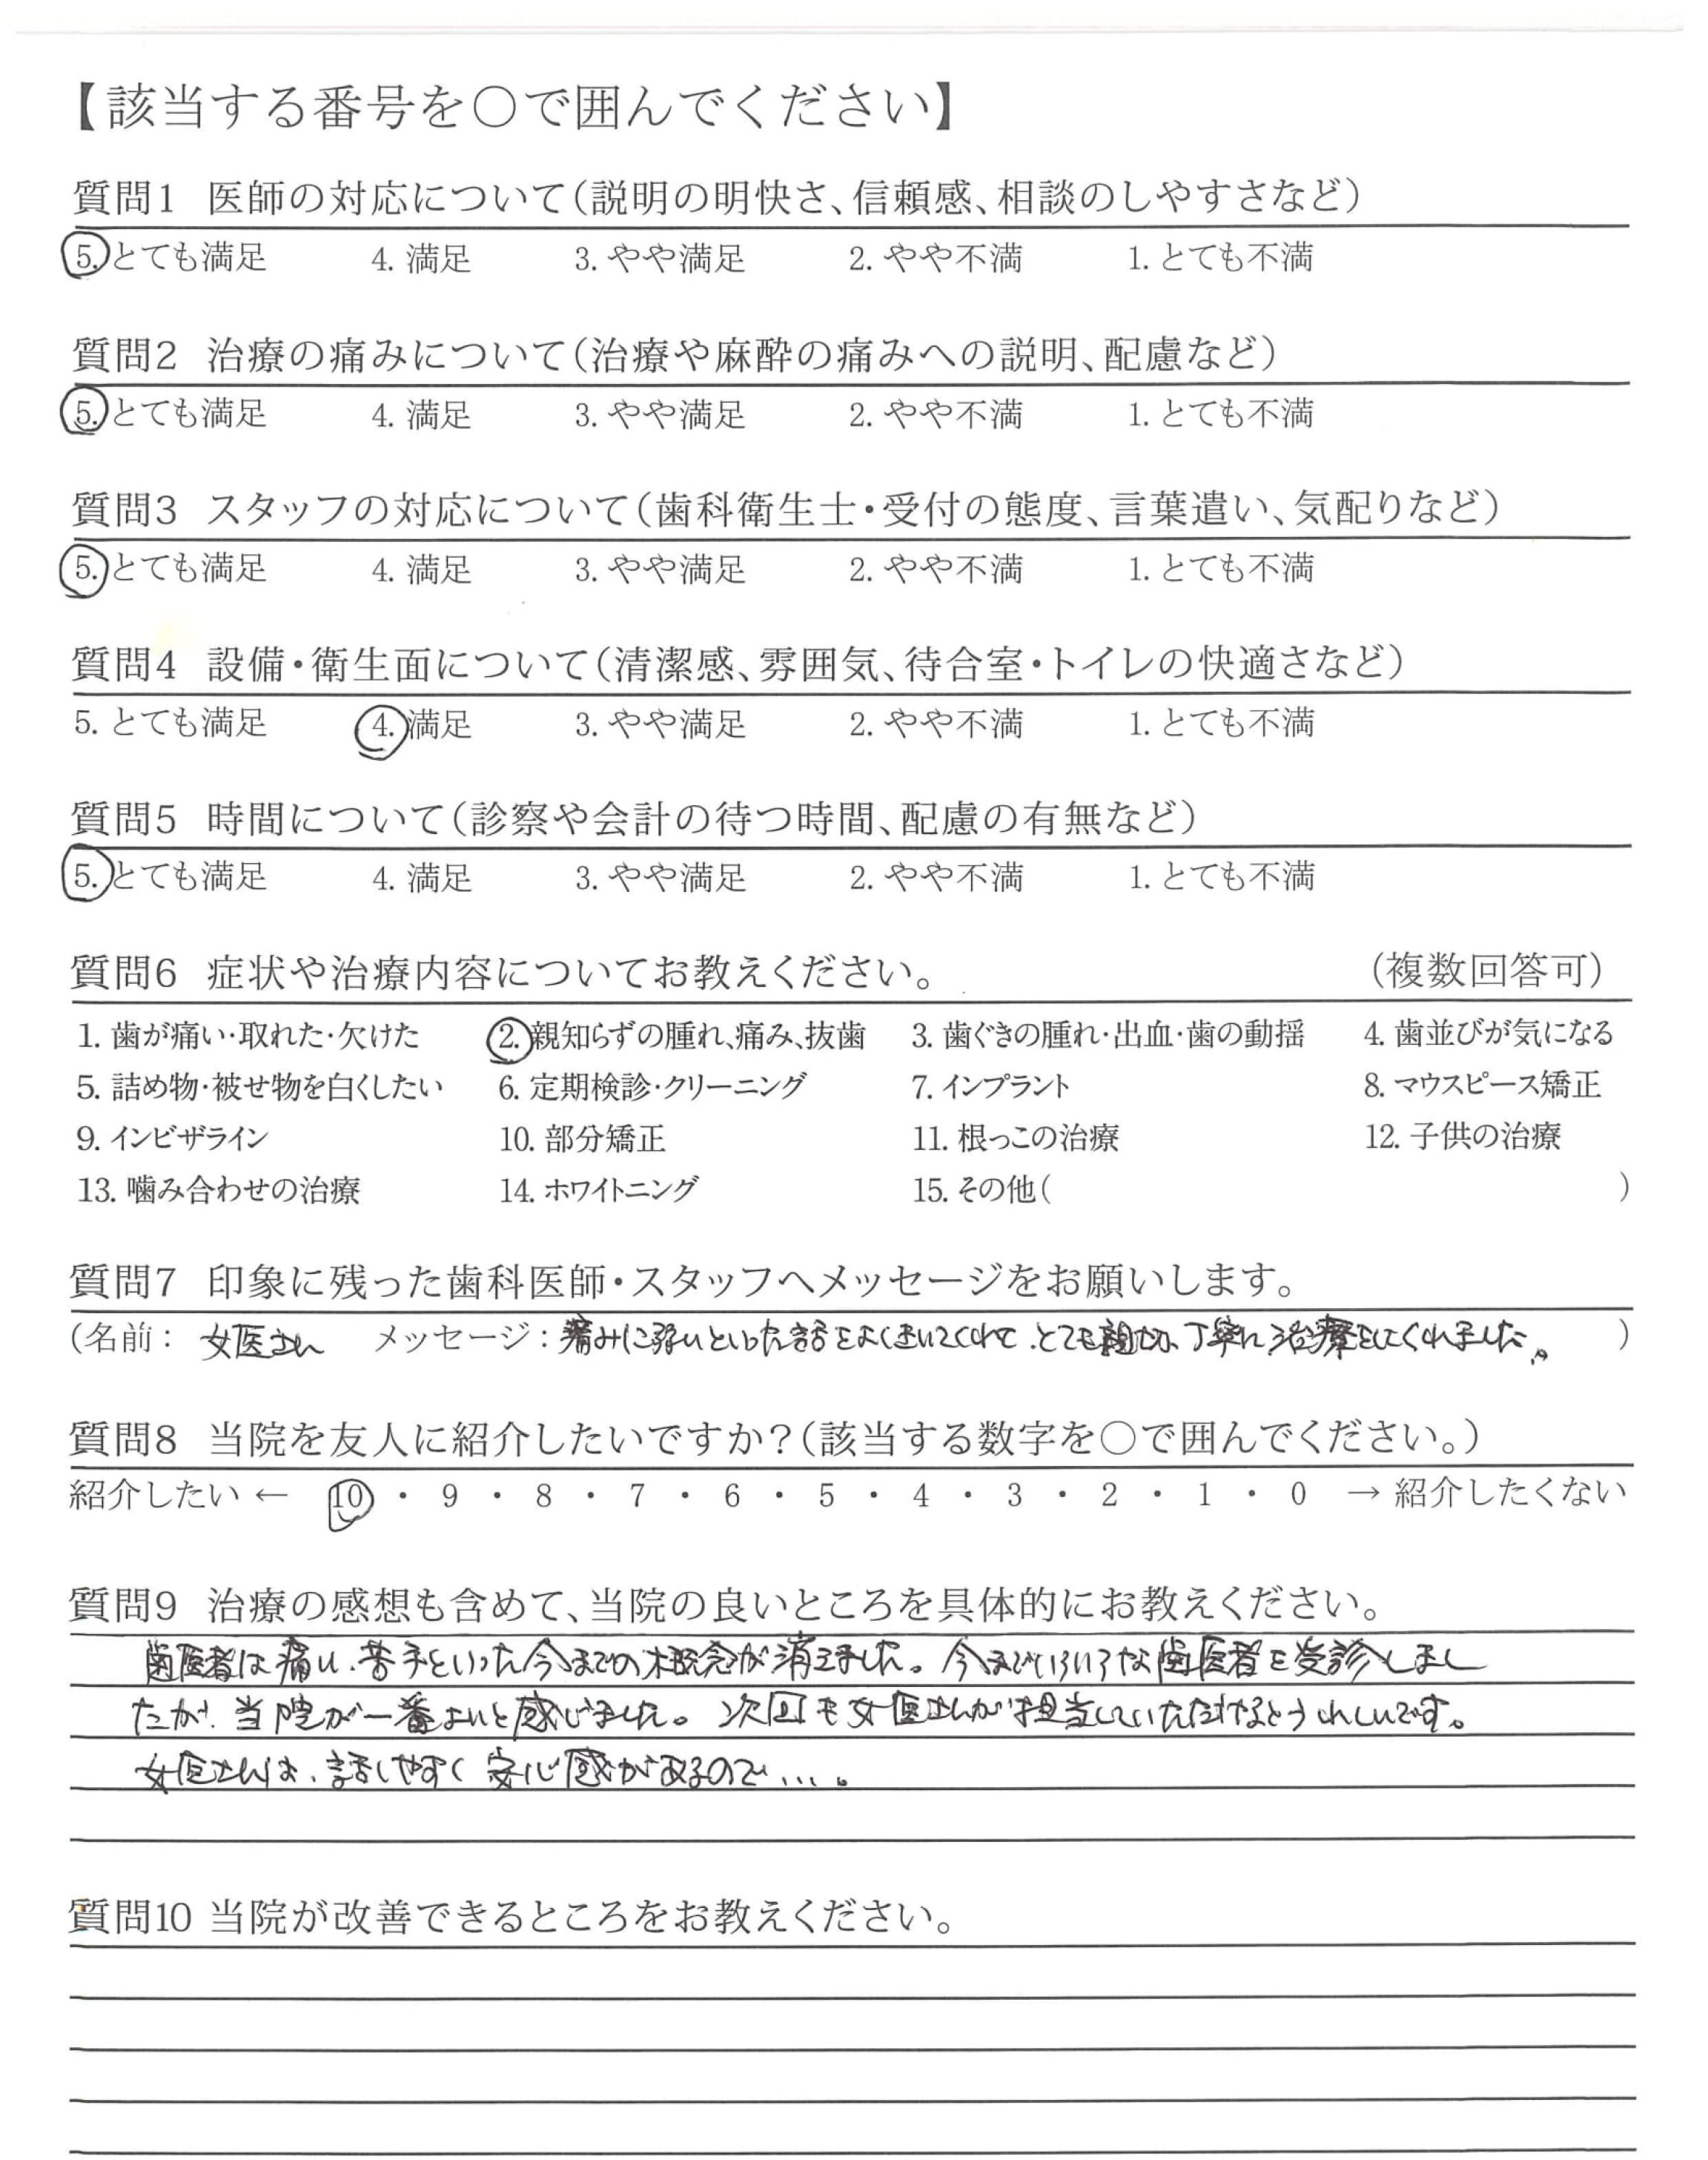 【該当する番号を〇で囲んでください】
質問1 医師の対応について(説明の明快さ、信頼感、相談のしやすさなど)
5. とても満足 4. 満足 3. やや満足 2. やや不満 1. とても不満
質問2 治療の痛みについて(治療や麻酔の痛みへの説明、配慮など)
5. とても満足 4. 満足 3. やや満足 2. やや不満 1. とても不満
質問3 スタッフの対応について(歯科衛生士・受付の態度、言葉遣い、気配りなど)
5. とても満足 4. 満足 3. やや満足 2. やや不満 1. とても不満
質問4 設備・衛生面について(清潔感、雰囲気、待合室・トイレの快適さなど)
5. とても満足 4. 満足 3. やや満足 2. やや不満 1. とても不満
質問5 時間について(診察や会計の待つ時間、配慮の有無など)
5. とても満足 4. 満足 3. やや満足 2. やや不満 1. とても不満
質問6 症状や治療内容についてお教えください。 (複数回答可)
1. 歯が痛い・取れた・欠けた 2. 親知らずの腫れ、痛み、抜歯 3. 歯ぐきの腫れ・出血・歯の動揺 4. 歯並びが気になる
5. 詰め物・被せ物を白くしたい 6. 定期検診・クリーニング 7. インプラント 8. マウスピース矯正
9. インビザライン 10. 部分矯正 11. 根っこの治療 12. 子供の治療
13. 噛み合わせの治療 14. ホワイトニング 15. その他( )
質問7 印象に残った歯科医師・スタッフへメッセージをお願いします。
(名前: 女医さん メッセージ: 痛みに弱いといった話をよくきいてくれて、とても親切、丁寧に治療をしてくれました。 )
質問8 当院を友人に紹介したいですか?(該当する数字を〇で囲んでください。)
紹介したい ← 10 ・ 9 ・ 8 ・ 7 ・ 6 ・ 5 ・ 4 ・ 3 ・ 2 ・ 1 ・ 0 → 紹介したくない
質問9 治療の感想も含めて、当院の良いところを具体的にお教えください。
歯医者は痛い、苦手といった今までの概念が消えました。今までいろいろな歯医者を受診しまし
たが、当院が一番よいと感じました。次回も女医さんが担当していただけるとうれしいです。
女医さんは、話しやすく安心感があるので…。
質問10 当院が改善できるところをお教えください。